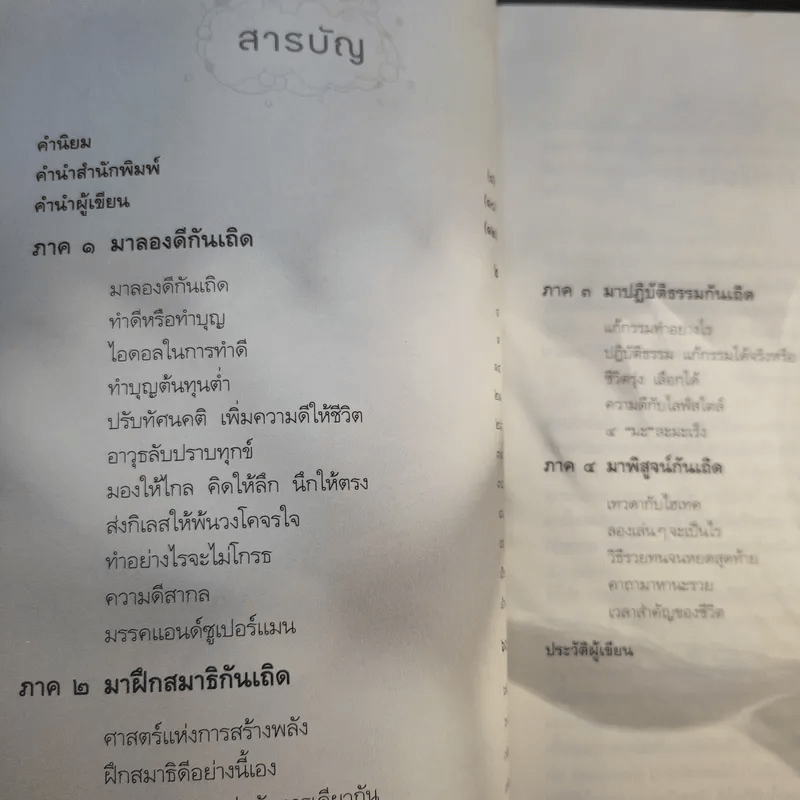 สารบัญ
คำนิยม
คำนำสำนักพิมพ์
คำนำผู้เขียน
ภาค ๑ มาลองดีกันเถิด
มาลองดีกันเถิด
ทำดีหรือทำบุญ
ไอดอลในการทำดี
ทำบุญต้นทุนต่ำ
ปรับทัศนคติ เพิ่มความดีให้ชีวิต
อาวุธลับปราบทุกข์
มองให้ไกล คิดให้ลึก นึกให้ตรง
ส่งกิเลสให้พ้นวงโคจรใจ
ทำอย่างไรจะไม่โกรธ
ความดีสากล
มรรคแอนด์ซูเปอร์แมน
ภาค ๒ มาฝึกสมาธิกันเถิด
ศาสตร์แห่งการสร้างพลัง
ฝึกสมาธิดีอย่างนี้เอง
ภาค ๓ มาปฏิบัติธรรมกันเถิด
แก้กรรมทำอย่างไร
ปฏิบัติธรรม แก้กรรมได้จริงหรือ
ชีวิตรุ่ง เลือกได้
ความดีกับไลฟ์สไตล์
๔ "มะ" ละมะเร็ง
ภาค ๔ มาพิสูจน์กันเถิด
เทวดากับไฮเทค
ลองเล่นๆ จะเป็นไร
วิธีรวยทนจนหยดสุดท้าย
คาถามหานะรวย
เวลาสำคัญของชีวิต
ประวัติผู้เขียน